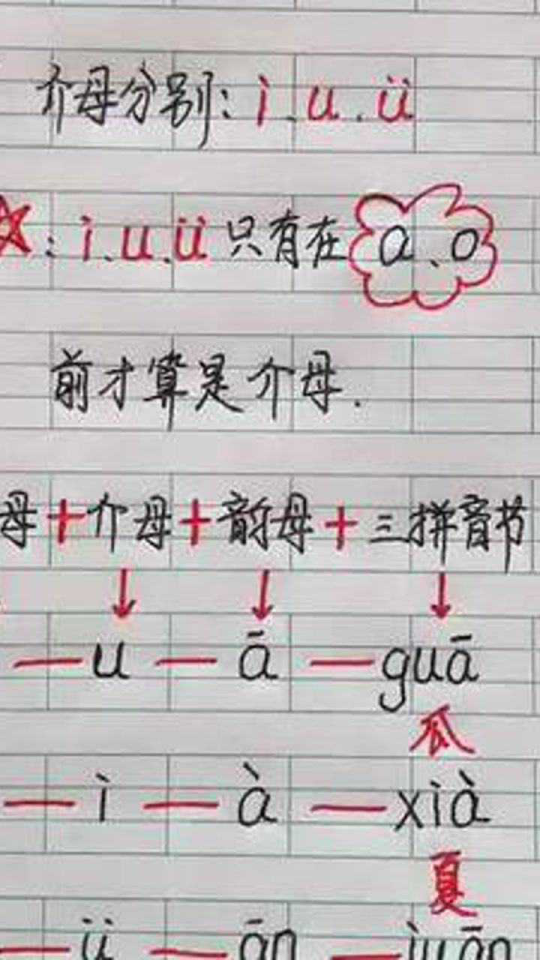 介母分别：i.u.ü
☆：i.u.ü只有在a、o
前才算是介母.
母+介母+韵母+三拼音节
— u — ā — guā
瓜
— i — à — xià
夏
— ü — ān — juān